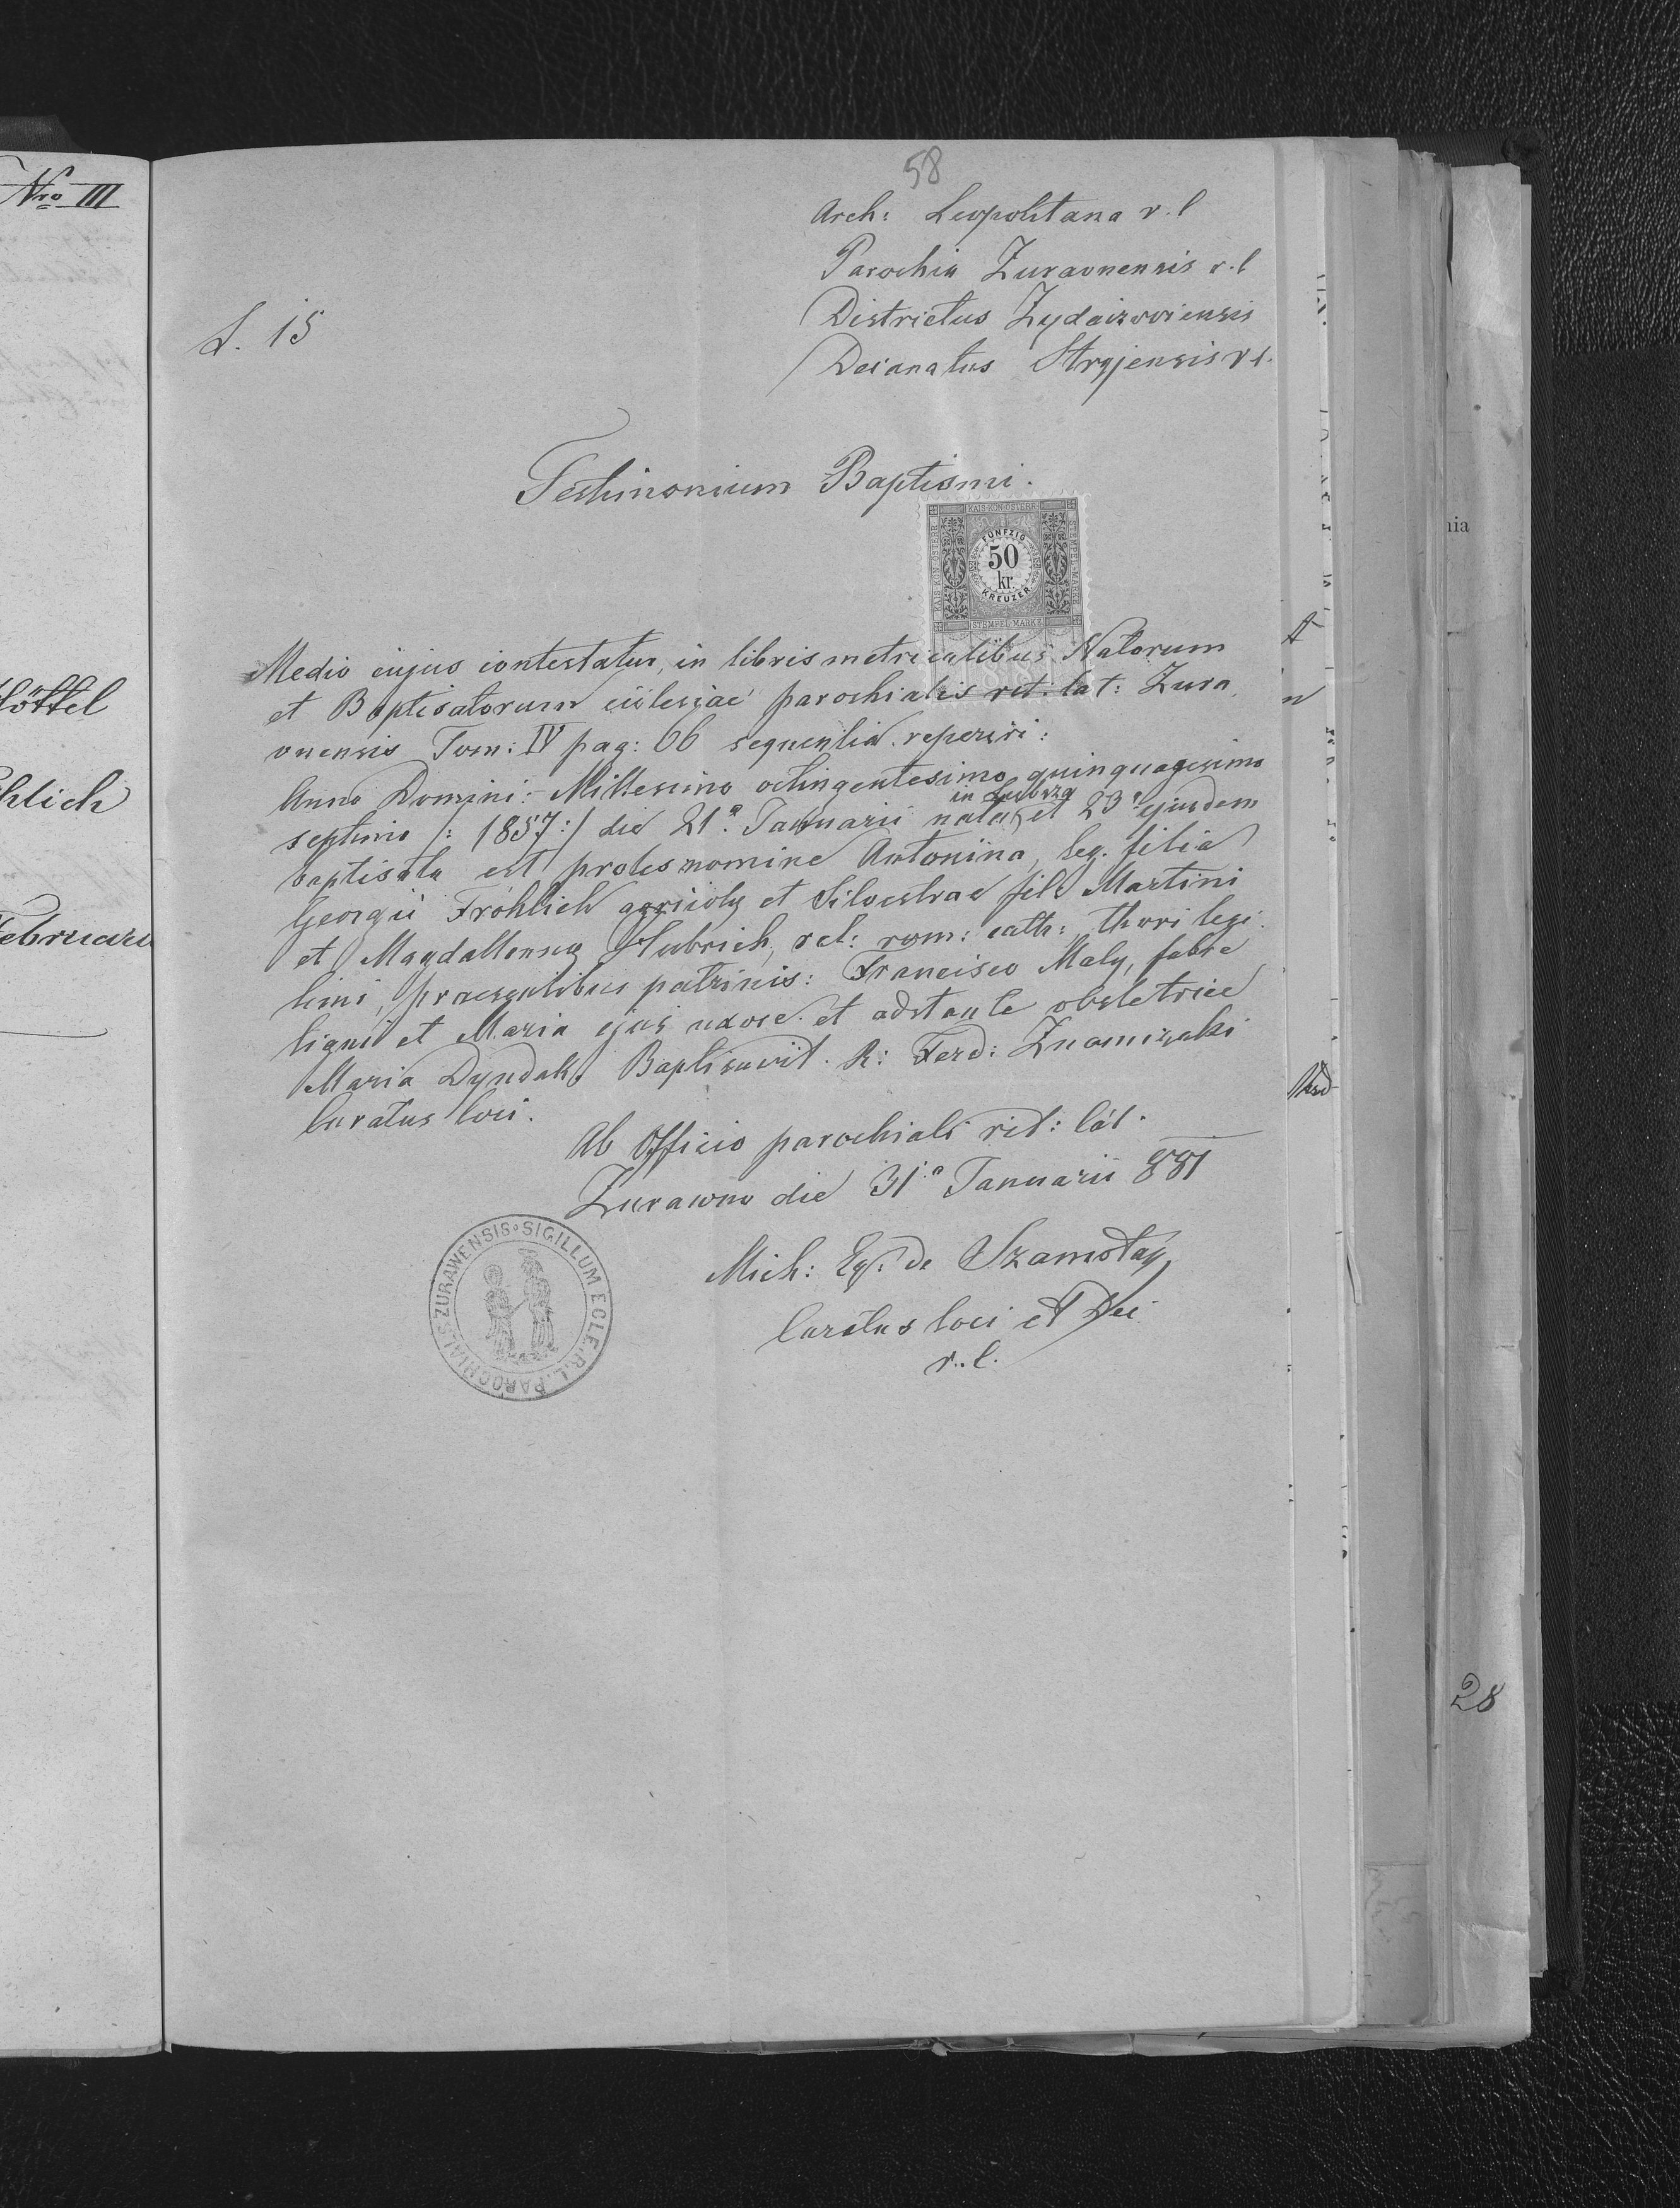 58
Nro III
Arch: Leopolitana r. l
Parochia Zuravnensis r. l
Districtus Zydaczoviensis
Decanatus Stryjensis r l.
L. 15
Testimonium Baptismi.
KAIS. KÖN. ÖSTERR.
STEMPEL-MARKE
FÜNFZIG
50
kr.
KREUZER
STEMPEL-MARKE
Medio cujus contestatur, in libris metricalibus Natorum
et Baptisatorum ecclesiae parochialis rit: lat: Zura
vnensis Tom: IV pag: 66 sequentia reperiri:
Anno Domini: Millesimo octingentesimo quinquagesimo
in
septimo /: 1857:/ die 21a Januarii nata, et 23 ejusdem
baptisata est proles nomine Antonina, leg. filia
Georgii Fröhlich agricoly et Silvestrae fil. Martini
et Magdallenny Hubrich, rel: rom: cath: thori legi
timi, praesentibus patrinis: Francisco Maly, fabre
ligni et Maria ejus uxore et adstante obstetrice
Maria Dyndak. Baptisavit R: Ferd: Znamirski
Curatus loci.
Ab Officio parochiali rit: lat.
Zurawno die 31a Januarii 881
Mich: Eq. de Szamotay
Curatus loci et Dec
r. l.
SIGILLUM ECLE. R. L. PAROCHIALIS ZURAWENSIS
öttel
hlich
ebruari
nia
28